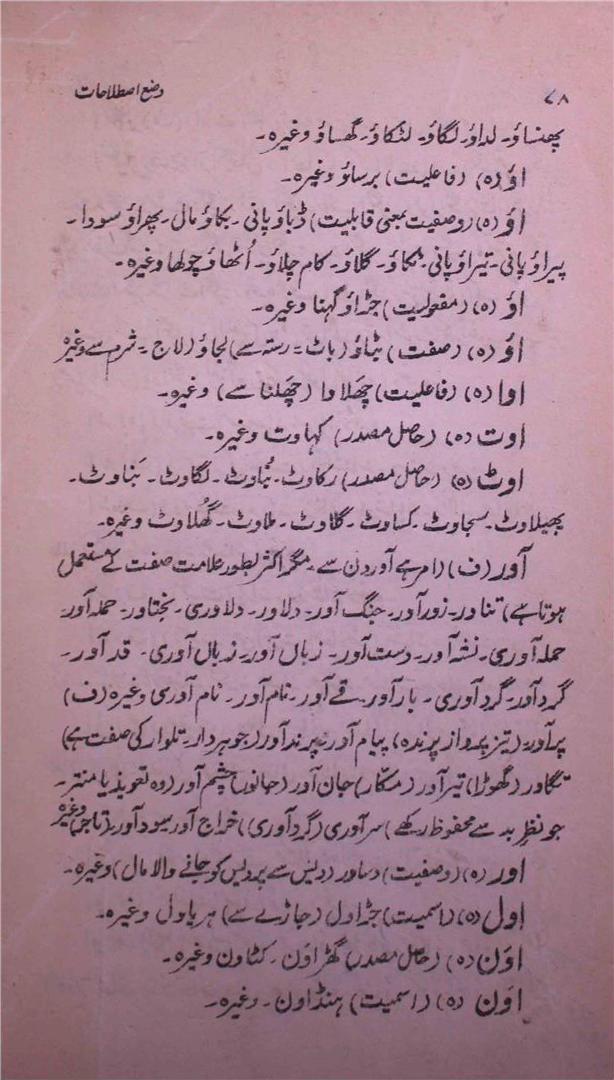 ۷۸ وضع اصطلاحات
پھنساؤ۔ لداؤ۔ لگاؤ۔ لٹکاؤ۔ گھساؤ وغیرہ۔
اؤ (ہ) (فاعلیت) برساؤ وغیرہ۔
اؤ (ہ) (وصفیت بمعنی قابلیت) ڈباؤ پانی۔ بکاؤ مال۔ پھراؤ سودا۔
پیراؤ پانی۔ تیراؤ پانی۔ ٹکاؤ۔ گلاؤ۔ کام چلاؤ۔ اُٹھاؤ چولھا وغیرہ۔
اؤ (ہ) (مفعولیت) جڑاؤ گہنا وغیرہ۔
اؤ (ہ) (صفت) بٹاؤ (باٹ = رستہ سے) لجاؤ (لاج = شرم سے وغیرہ
اوا (ہ) (فاعلیت) چھلاوا (چھَلنا سے) وغیرہ۔
اوت (ہ) (حاصل مصدر) کہاوت وغیرہ۔
اوٹ (ہ) (حاصل مصدر) رکاوٹ۔ بُناوٹ۔ لگاوٹ۔ بَناوٹ۔
پھیلاوٹ۔ سجاوٹ۔ کساوٹ۔ گلاوٹ۔ ملاوٹ۔ گھُلاوٹ وغیرہ۔
آور (ف) (امر ہے آوردن سے۔ مگر اکثر بطور علامت صفت کے مستعمل
ہوتا ہے) تناور۔ زورآور۔ جنگ آور۔ دلاور۔ دلاوری۔ بختاور۔ حملہ آور۔
حملہ آوری۔ نشہ آور۔ دست آور۔ زباں آور۔ زباں آوری۔ قد آور۔
گرد آور۔ گرد آوری۔ بارآور۔ قے آور۔ نام آور۔ نام آوری وغیرہ (ف)
پرآور۔ (تیز پرواز پرندہ) پیام آور۔ پرند آور (جوہردار۔ تلوار کی صفت ہے)
تگاور (گھوڑا) تیرآور (مکّار) جان آور (جانور) چشم آور (وہ تعویذ یا منتر۔
جو نظر بد سے محفوظ رکھے) سرآوری (گردآوری) خراج آور سود آور۔ (تاجر) وغیرہ
اور (ہ) (وصفیت) دساور (دیس سے پردیس کو جانے والا مال) وغیرہ۔
اول (ہ) (اسمیت) جڑاول (جاڑے سے) ہریاول وغیرہ۔
اوَن (ہ) (حاصل مصدر) گھڑاوَن۔ کٹاون وغیرہ۔
اوَن (ہ) (اسمیت) ہنڈاون۔ وغیرہ۔